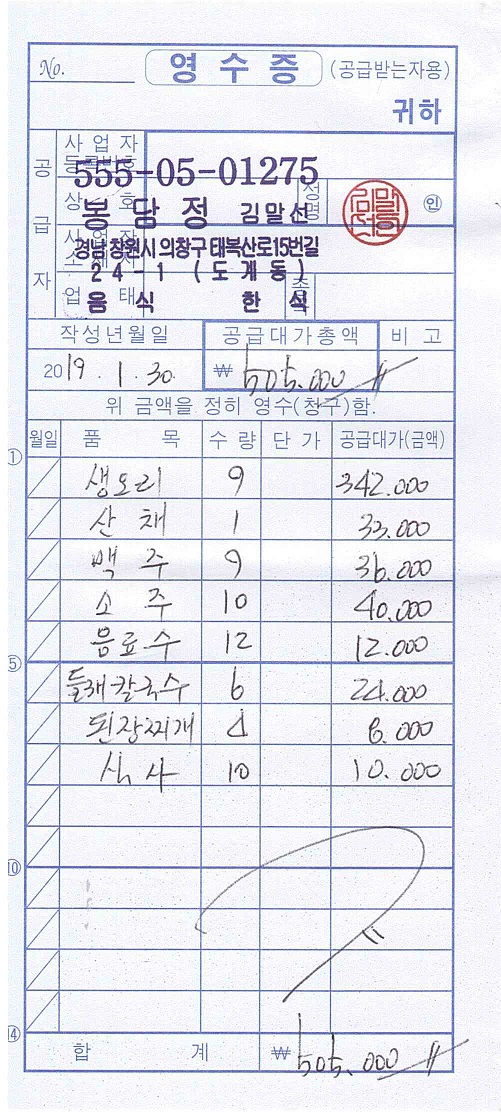 No. 영수증 (공급받는자용)
귀하
공급자
사업자
등록번호
555-05-01275
상호 봉담정 성명 김말선 ㊞
사업장
소재지
경남 창원시 의창구 태복산로15번길
24-1 (도계동)
업태 음식 종목 한식
작성년월일 공급대가총액 비고
2019. 1. 30. ₩ 505.000
위 금액을 정히 영수(청구)함.
월일 품목 수량 단가 공급대가(금액)
① 생오리 9 342.000
산채 1 33.000
맥주 9 36.000
소주 10 40.000
음료수 12 12.000
⑤ 들깨칼국수 6 24.000
된장찌개 4 8.000
식사 10 10.000
⑩
⑭
합계 ₩ 505.000